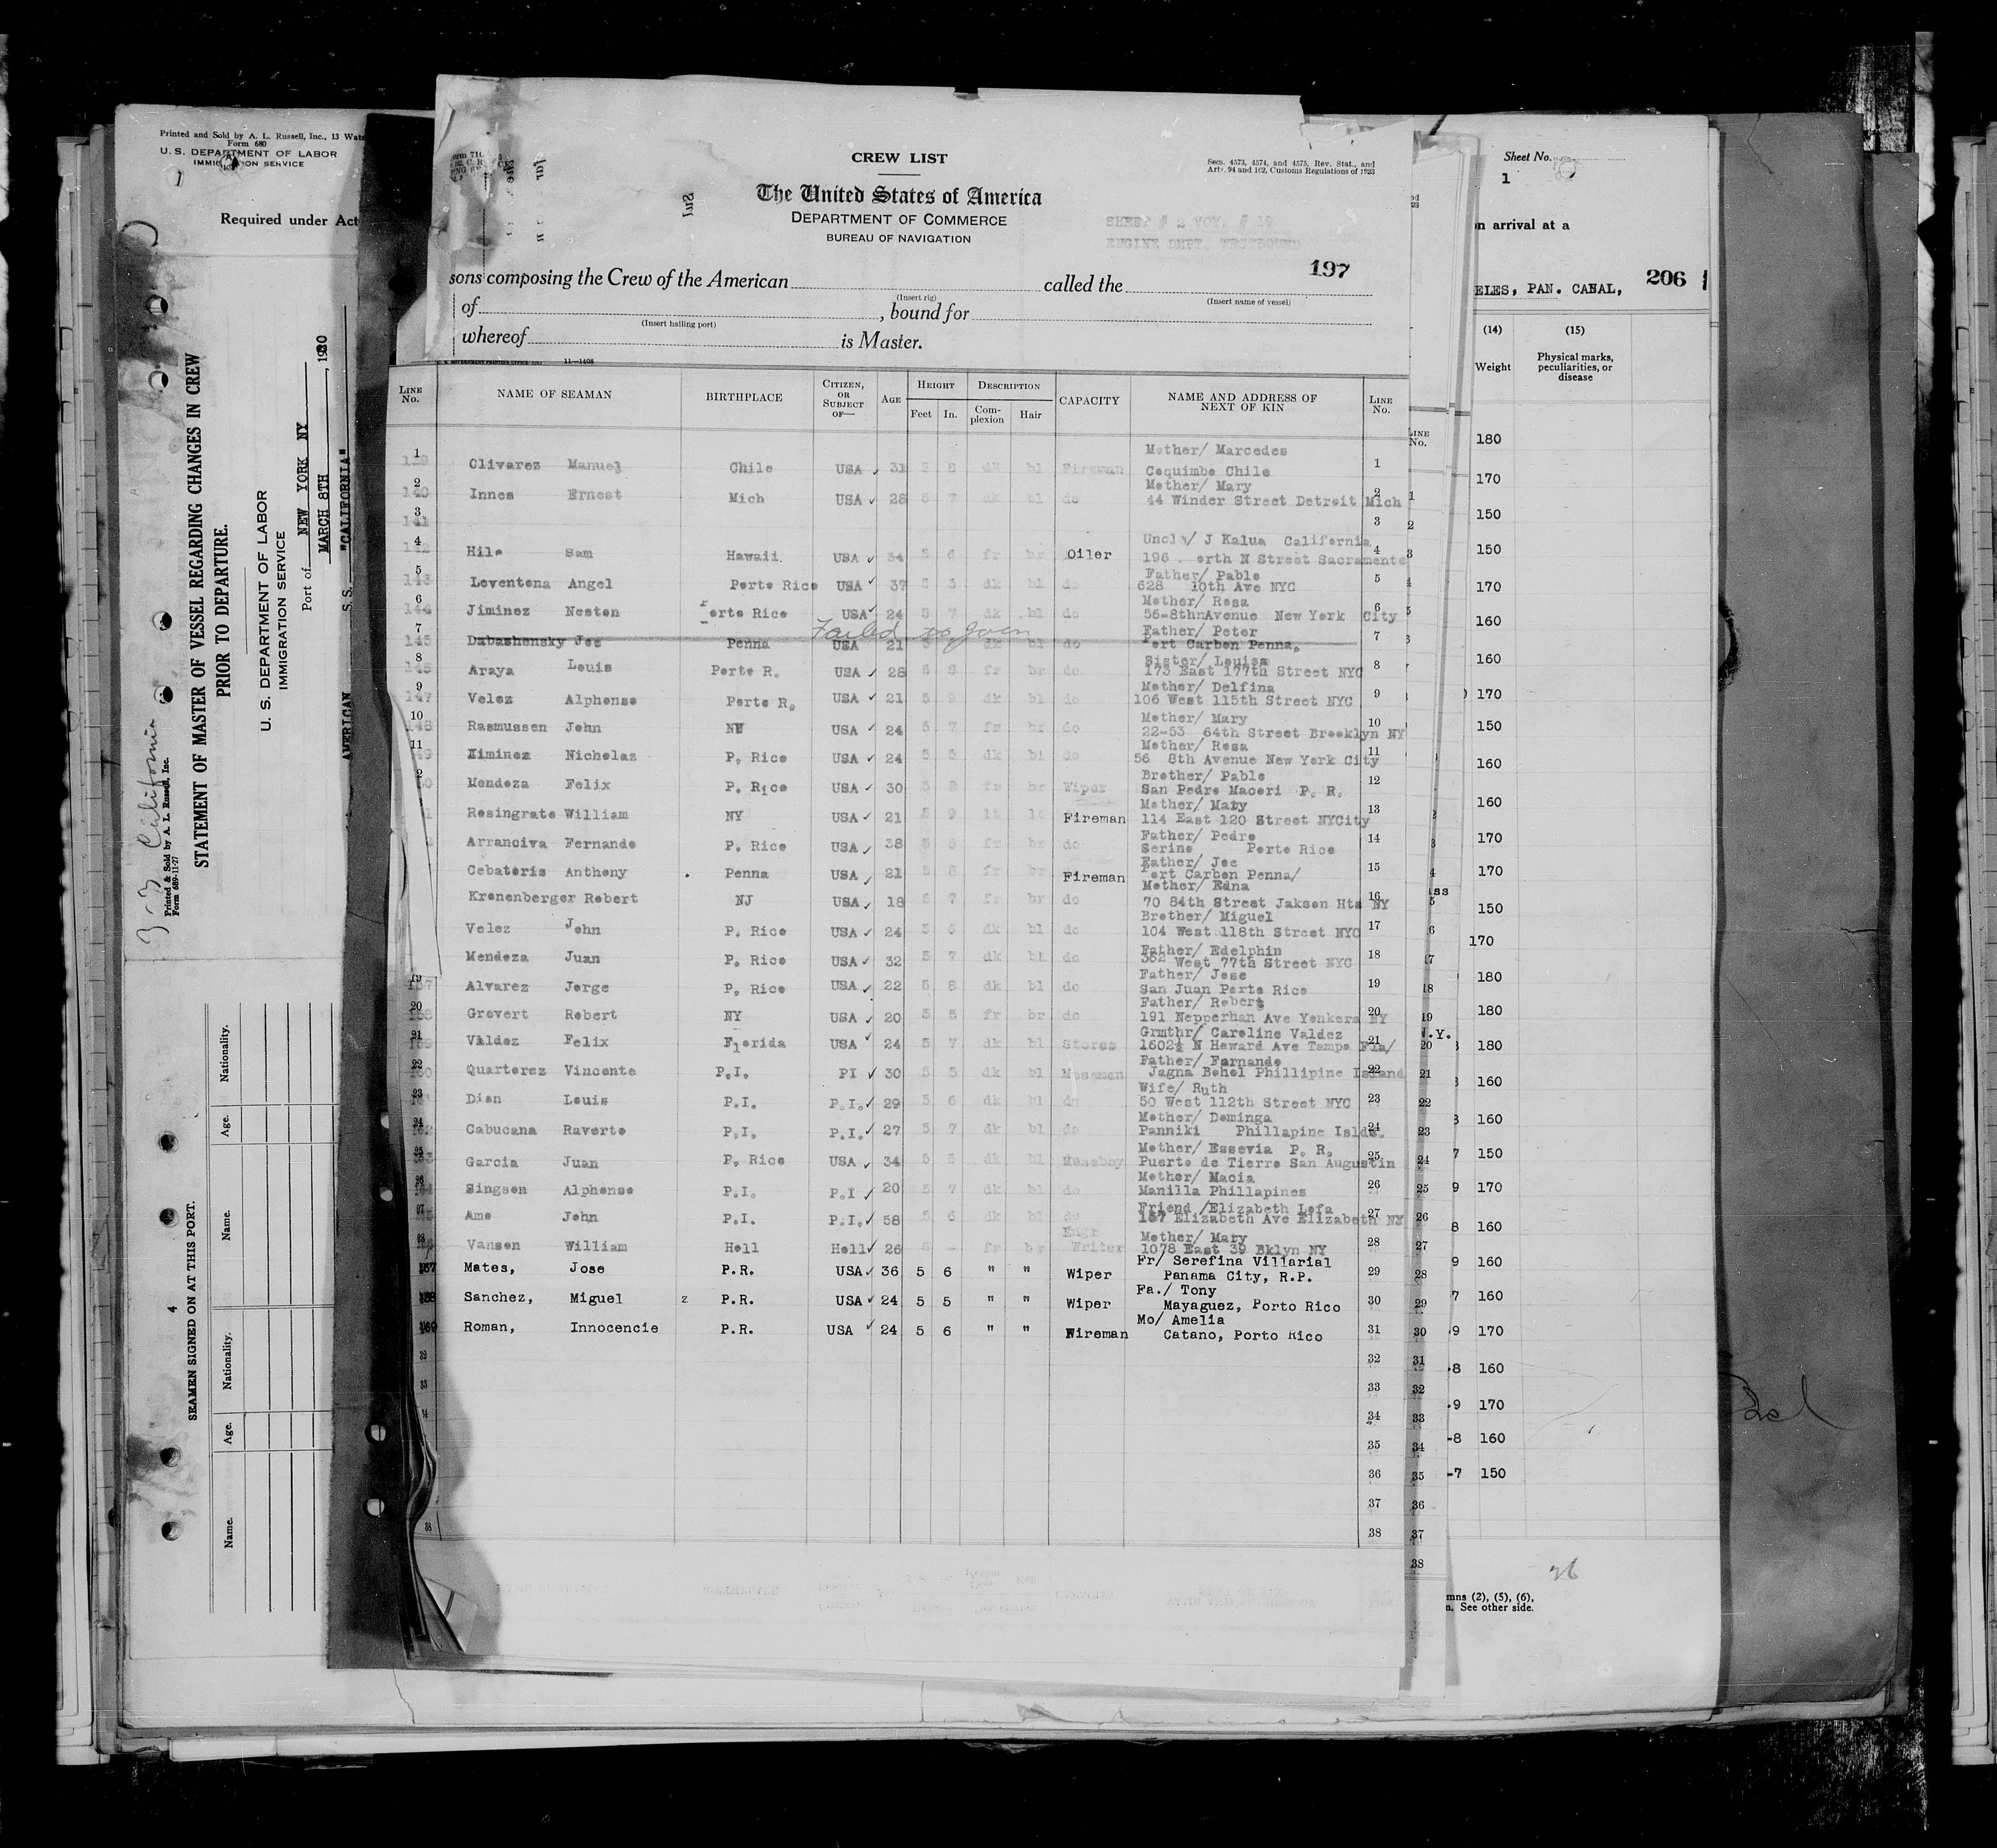 Printed and Sold by A. L. Russell, Inc., 13 Wate
Form 680
U. S. DEPARTMENT OF LABOR
IMMIGRATION SERVICE
Required under Act
3-3 California
Printed & Sold by A. L. Russell, Inc.
Form 689-11-27
STATEMENT OF MASTER OF VESSEL REGARDING CHANGES IN CREW
PRIOR TO DEPARTURE.
U. S. DEPARTMENT OF LABOR
IMMIGRATION SERVICE
Port of NEW YORK NY
MARCH 8TH, 1930
AMERICAN S.S. "CALIFORNIA"
4
SEAMEN SIGNED ON AT THIS PORT.
Name. Age. Nationality. Name. Age. Nationality.
CREW LIST
Secs. 4573, 4574, and 4575, Rev. Stat., and
Arts. 94 and 162, Customs Regulations of 1923
The United States of America
DEPARTMENT OF COMMERCE
BUREAU OF NAVIGATION
SHEET # 2 VOY. # 19
ENGINE DEPT. WESTBOUND
197
sons composing the Crew of the American called the
(Insert rig) (Insert name of vessel)
of , bound for
(Insert hailing port)
whereof is Master.
11—1408
LINE No. NAME OF SEAMAN BIRTHPLACE CITIZEN, OR SUBJECT OF— AGE HEIGHT Feet In. DESCRIPTION Complexion Hair CAPACITY NAME AND ADDRESS OF NEXT OF KIN LINE No.
Mother/ Marcedes
1 Olivarez Manuel Chile USA ✓ 31 5 8 dk bl Fireman Coquimbo Chile 1
Mother/ Mary
2 140 Innes Ernest Mich USA ✓ 28 5 7 dk bl do 44 Winder Street Detroit Mich 2
3 141 3
Uncle/ J Kalua California
4 142 Hile Sam Hawaii. USA ✓ 34 5 6 fr br Oiler 196 . orth N Street Sacramento 4
Father/ Pablo
5 143 Leventena Angel Porto Rico USA ✓ 37 5 3 dk bl do 628 10th Ave NYC 5
Mother/ Rosa
6 144 Jiminez Neston Porto Rico USA ✓ 24 5 7 dk bl do 56-8thnAvenue New York City 6
Failed to join
Father/ Peter
7 145 Dabashensky Joe Penna USA 21 5 dk bl do Port Carbon Penna, 7
Sister/ Louisa
8 146 Araya Louis Porto R. USA ✓ 28 5 8 fr br do 173 East 177th Street NYC 8
Mother/ Delfina
9 147 Velez Alphonso Porto R. USA ✓ 21 5 9 dk bl do 106 West 115th Street NYC 9
Mother/ Mary
10 148 Rasmussen John USA ✓ 24 5 7 fr br do 22-53 64th Street Brooklyn NY 10
Mother/ Rosa
11 Ximinez Nicholaz P. Rico USA ✓ 24 5 5 dk bl do 56 8th Avenue New York City 11
Brother/ Pablo
Mendoza Felix P. Rico USA ✓ 30 5 8 fr br Wiper San Pedro Macori P. R. 12
Mother/ Mary
Rosingrate William NY USA ✓ 21 5 9 lt lt Fireman 114 East 120 Street NYCity 13
Father/ Pedro
Arranciva Fernando P. Rico USA ✓ 38 5 8 fr br do Serino Porto Rico 14
Father/ Joe
Cebatoris Anthony Penna USA ✓ 21 5 8 fr br Fireman Port Carbon Penna/ 15
Mother/ Edna
Kronenberger Robert NJ USA ✓ 18 5 7 fr br do 70 84th Street Jakson Hts NY 16
Brother/ Miguel
Velez John P. Rico USA ✓ 24 5 6 dk bl do 104 West 118th Street NYC 17
Father/ Edelphin
Mendoza Juan P. Rico USA ✓ 32 5 7 dk bl do 362 West 77th Street NYC 18
Father/ Jose
19 Alvarez Jorge P. Rico USA ✓ 22 5 8 dk bl do San Juan Porto Rico 19
Father/ Robert
20 Grevert Robert NY USA ✓ 20 5 5 fr br do 191 Nepperhan Ave Yonkers NY 20
Grmthr/ Caroline Valdez
21 Valdez Felix Florida USA ✓ 24 5 7 dk bl Stores 1602½ N Howard Ave Tampa Fla/ 21
Father/ Fernando
22 Quarterez Vincente P.I. PI ✓ 30 5 5 dk bl Messman Jagna Bohol Phillipine Island 22
Wife/ Ruth
23 Dion Louis P.I. P.I. ✓ 29 5 6 dk bl do 50 West 112th Street NYC 23
Mother/ Dominga
24 Cabucana Raverto P.I. P.I. ✓ 27 5 7 dk bl do Panniki Phillapine Islds. 24
Mother/ Essevia P. R.
25 Garcia Juan P. Rico USA ✓ 34 5 5 dk bl Messboy Puerto de Tierro San Augustin 25
Mother/ Macia
26 Singson Alphonso P.I. P.I ✓ 20 5 7 dk bl do Manilla Phillapines 26
Friend /Elizabeth Lefa
27 Amo John P.I. P.I. ✓ 58 5 6 dk bl do 157 Elizabeth Ave Elizabeth NY 27
Mother/ Mary
28 Vanson William Holl Holl ✓ 26 6 - fr br Engr Writer 1078 East 39 Bklyn NY 28
Fr/ Serefina Villarial
167 Mates, Jose P.R. USA ✓ 36 5 6 " " Wiper Panama City, R.P. 29
Fa./ Tony
168 Sanchez, Miguel z P.R. USA ✓ 24 5 5 " " Wiper Mayaguez, Porto Rico 30
Mo/ Amelia
169 Roman, Innocencio P.R. USA ✓ 24 5 6 " " Fireman Catano, Porto Rico 31
32
33
34
35
36
37
38
Sheet No.
1
on arrival at a
ELES, PAN. CANAL, 206
(14) (15)
Weight Physical marks, peculiarities, or disease
LINE No.
180
170
150
150
170
160
160
170
150
160
160
170
170
150
170
180
180
180
160
160
150
170
160
160
160
170
160
170
160
150
26
mns (2), (5), (6),
n. See other side.